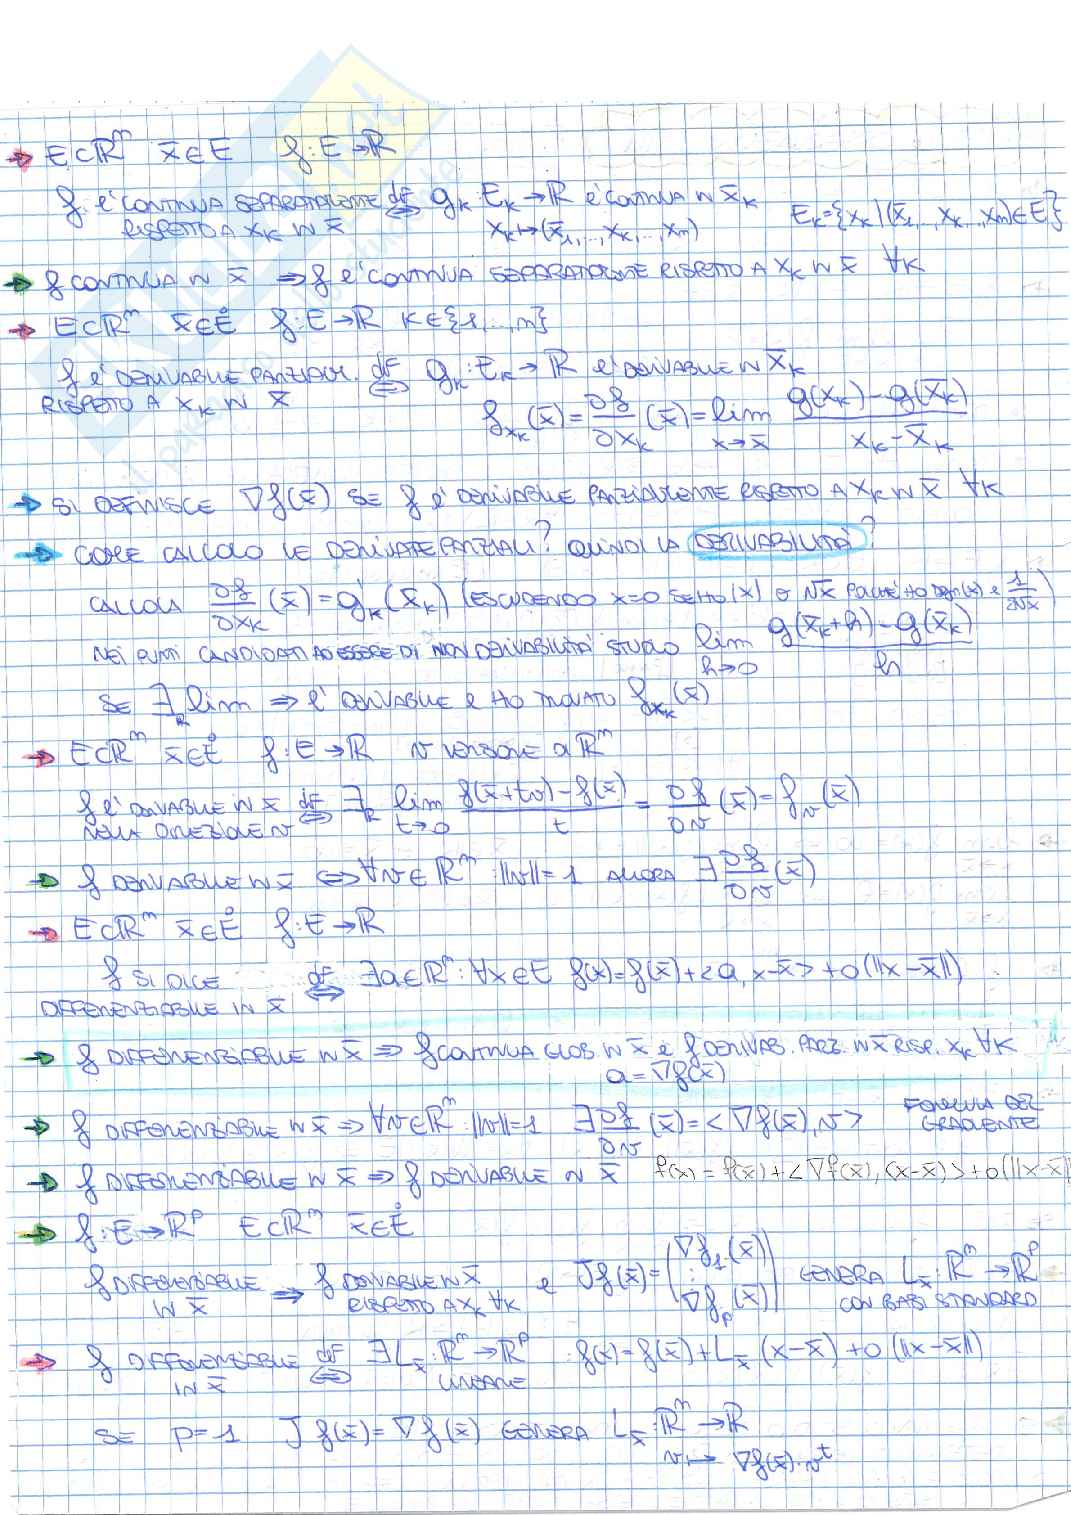 → E⊂ℝⁿ x̄∈E f:E→ℝ
f è CONTINUA SEPARATAMENTE ⇔(df) g_K: E_K→ℝ è CONTINUA IN x̄_K E_K={x_K|(x̄₁,…,x_K,…,x̄n)∈E}
RISPETTO A x_K IN x̄ x_K↦(x̄₁,…,x_K,…,x̄n)
→ f CONTINUA IN x̄ ⇒ f è CONTINUA SEPARATAMENTE RISPETTO A x_K IN x̄ ∀K
→ E⊂ℝⁿ x̄∈E̊ f:E→ℝ K∈{1,…,n}
f è DERIVABILE PARZIALM. ⇔(df) g_K: E_K→ℝ è DERIVABILE IN x̄_K
RISPETTO A x_K IN x̄
f_{x_K}(x̄)=∂f/∂x_K(x̄)=lim_{x→x̄} (g(x_K)-g(x̄_K))/(x_K-x̄_K)
→ SI DEFINISCE ∇f(x̄) SE f è DERIVABILE PARZIALMENTE RISPETTO A x_K IN x̄ ∀K
→ COME CALCOLO LE DERIVATE PARZIALI? QUINDI LA DERIVABILITÀ?
CALCOLA ∂f/∂x_K(x̄)=g'_K(x̄_K) (ESCLUDENDO x=0 SE HO |x| o √x PERCHÉ HO sgn(x) e 1/(2√x))
NEI PUNTI CANDIDATI AD ESSERE DI NON DERIVABILITÀ STUDIO lim_{h→0} (g(x̄_K+h)-g(x̄_K))/h
SE ∃_ℝ lim ⇒ è DERIVABILE e HO TROVATO f_{x_K}(x̄)
→ E⊂ℝⁿ x̄∈E̊ f:E→ℝ v VERSORE di ℝⁿ
f è DERIVABILE IN x̄ ⇔(df) ∃_ℝ lim_{t→0} (f(x̄+tv)-f(x̄))/t = ∂f/∂v(x̄)=f_v(x̄)
NELLA DIREZIONE v
→ f DERIVABILE IN x̄ ⇔ ∀v∈ℝⁿ:||v||=1 ALLORA ∃ ∂f/∂v(x̄)
→ E⊂ℝⁿ x̄∈E̊ f:E→ℝ
f SI DICE ⇔(df) ∃a∈ℝⁿ:∀x∈E f(x)=f(x̄)+<a,x-x̄>+o(||x-x̄||)
DIFFERENZIABILE IN x̄
→ f DIFFERENZIABILE IN x̄ ⇒ f CONTINUA GLOB. IN x̄ e f DERIVAB. PARZ. IN x̄ RISP. x_K ∀K
a=∇f(x̄)
→ f DIFFERENZIABILE IN x̄ ⇒ ∀v∈ℝⁿ:||v||=1 ∃ ∂f/∂v(x̄)=<∇f(x̄),v> FORMULA DEL
GRADIENTE
→ f DIFFERENZIABILE IN x̄ ⇒ f DERIVABILE IN x̄ f(x)=f(x̄)+<∇f(x̄),(x-x̄)>+o(||x-x̄||
→ f:E→ℝᵖ E⊂ℝⁿ x̄∈E̊
f DIFFERENZIABILE ⇒ f DERIVABILE IN x̄ e Jf(x̄)=(∇f₁(x̄) ⋮ ∇f_p(x̄)) GENERA L_x̄:ℝⁿ→ℝᵖ
IN x̄ RISPETTO A x_K ∀K CON BASI STANDARD
→ f DIFFERENZIABILE ⇔(df) ∃L_x̄:ℝⁿ→ℝᵖ :f(x)=f(x̄)+L_x̄(x-x̄)+o(||x-x̄||)
IN x̄ LINEARE
SE p=1 Jf(x̄)=∇f(x̄) GENERA L_x̄:ℝⁿ→ℝ
v↦∇f(x̄)·vᵗ